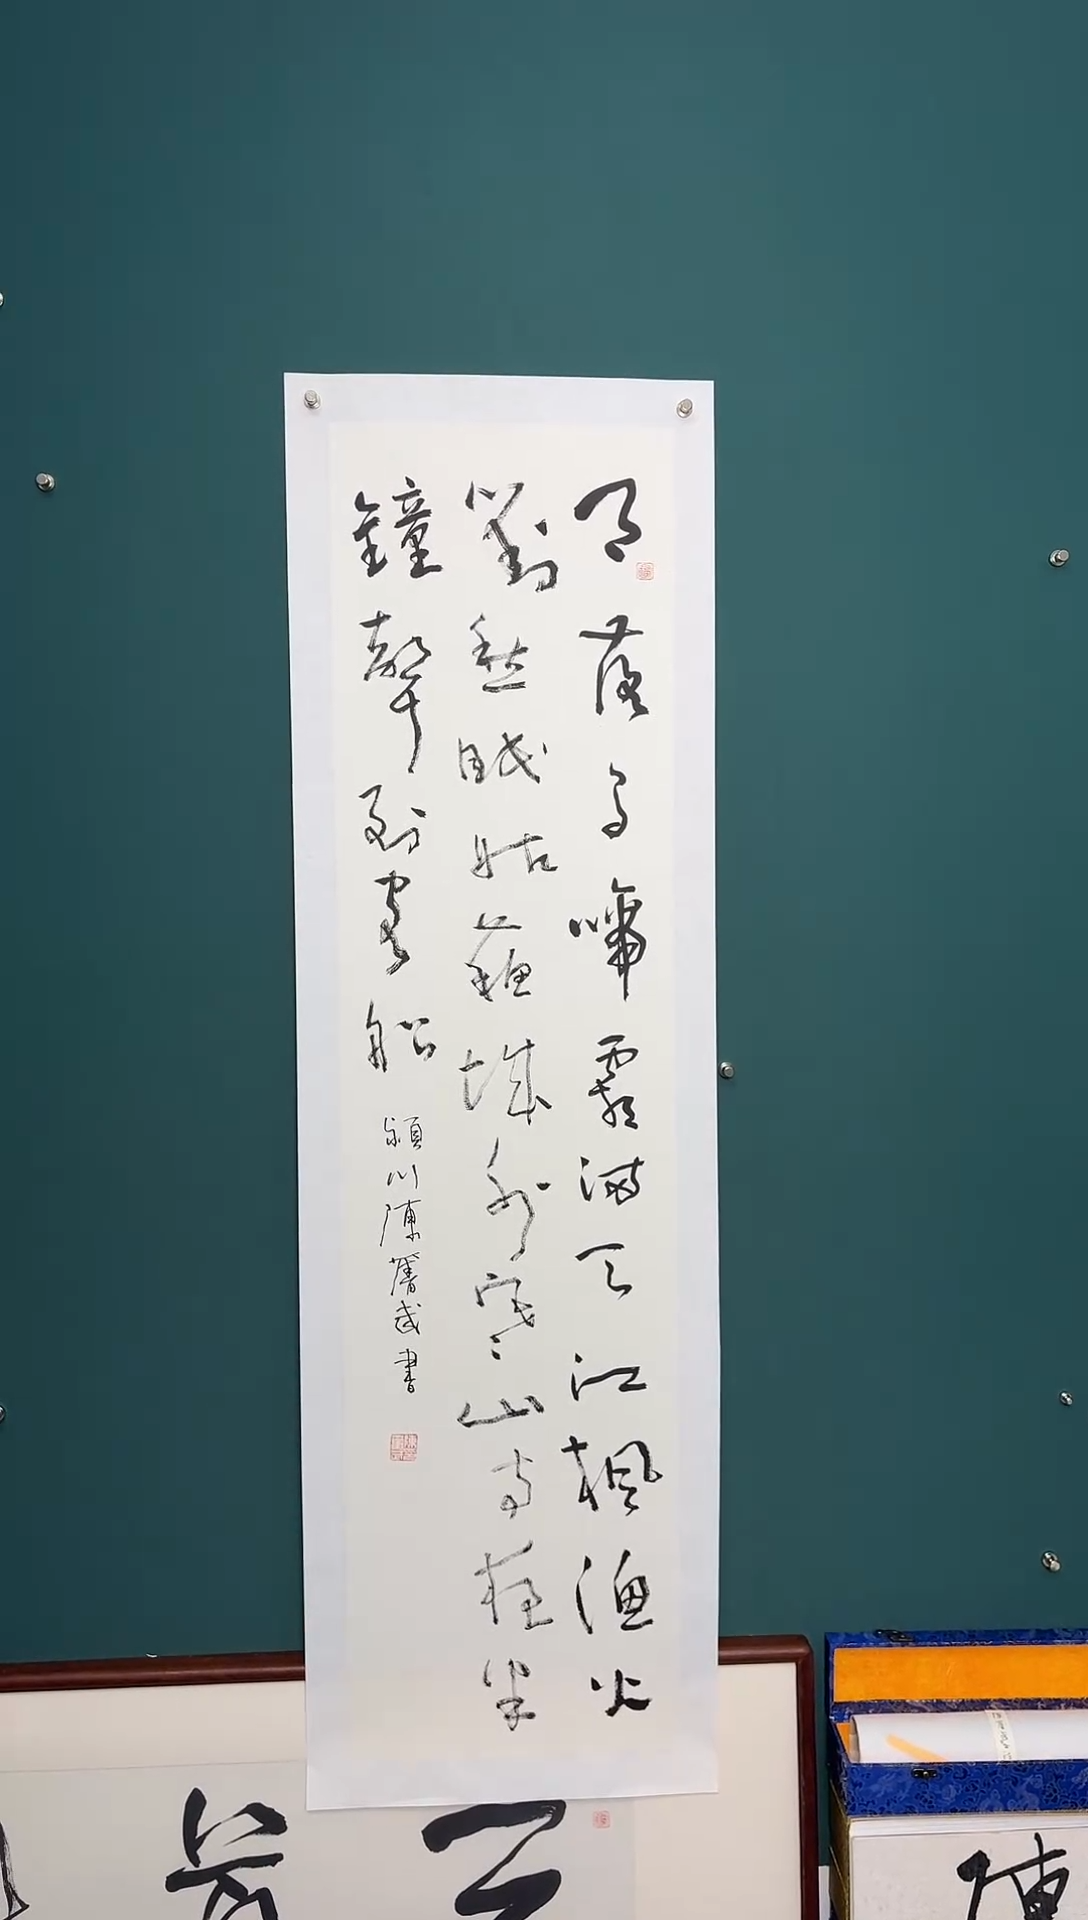 月落烏啼霜滿天江楓漁火
對愁眠姑蘇城外寒山寺夜半
鐘聲到客船
潁川陳武書
陳